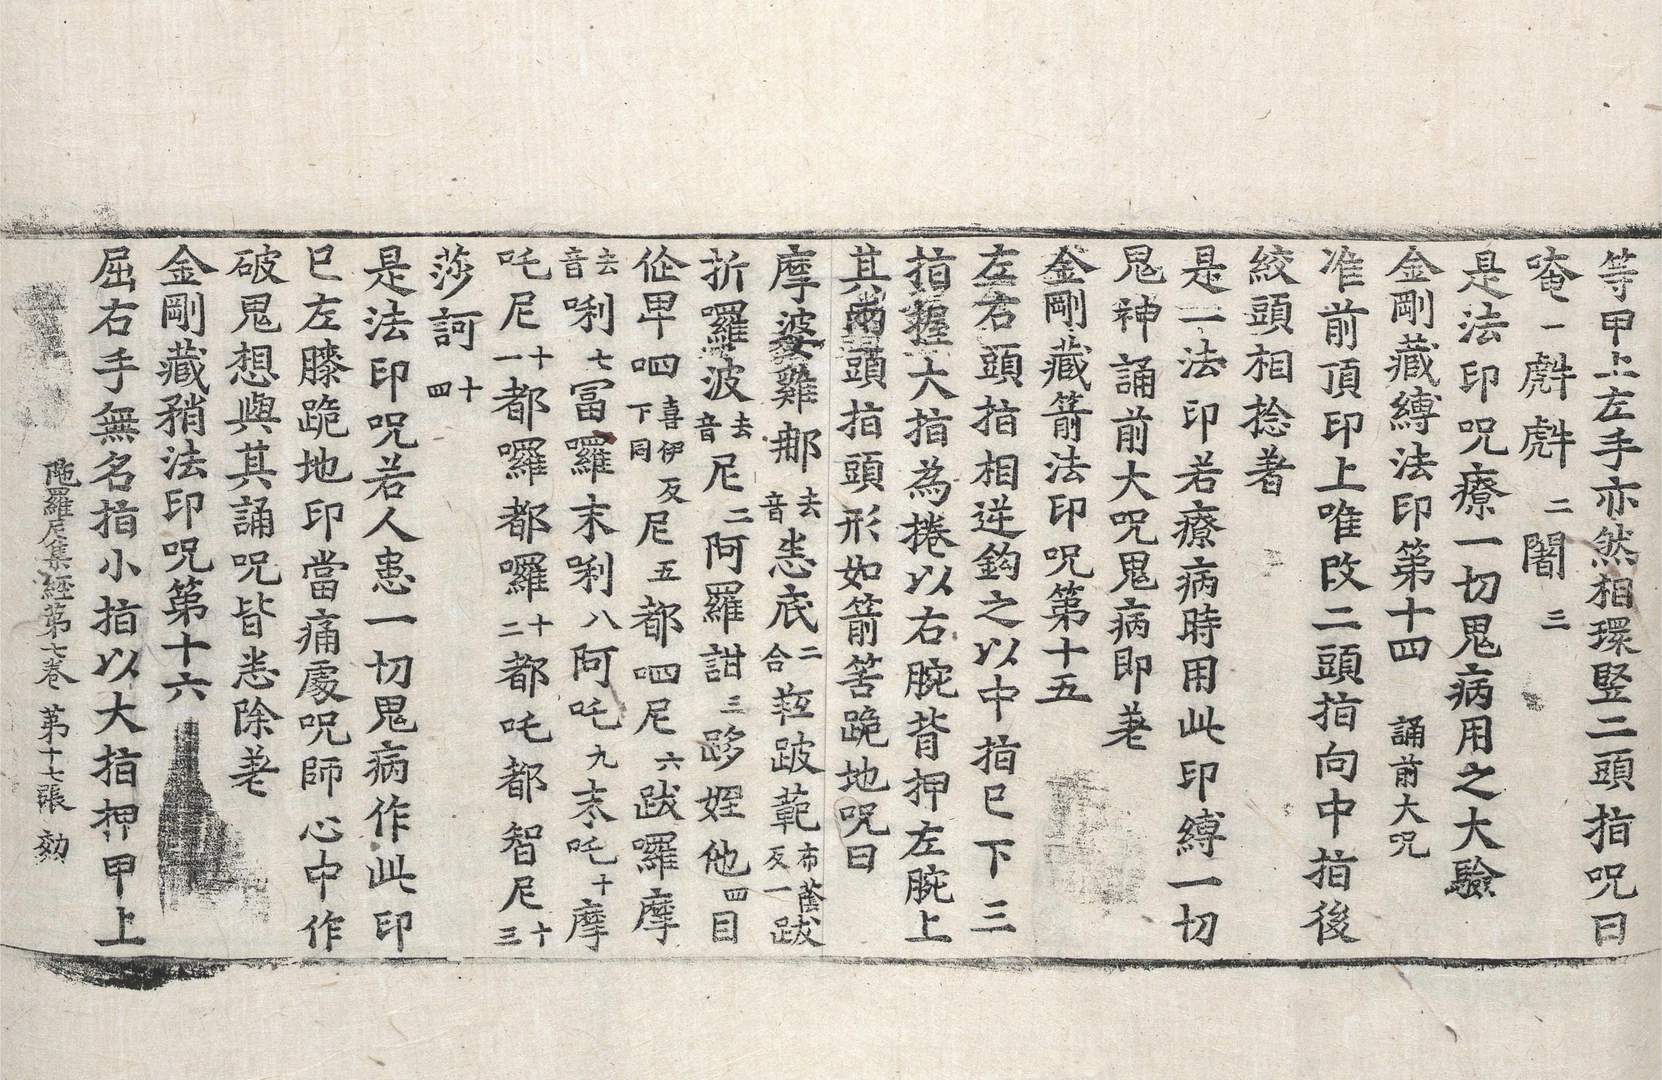 等甲上左手亦然相環竪二頭指呪曰
唵一𤙖𤙖二闇三
是法印呪療一切鬼病用之大驗
金剛藏縛法印第十四 誦前大呪
准前頂印上唯改二頭指向中指後
絞頭相捻著
是一法印若療病時用此印縛一切
鬼神誦前大呪鬼病即差
金剛藏箭法印呪第十五
左右頭指相逆鈎之以中指已下三
指握大指為捲以右腕背押左腕上
其兩頭指頭形如箭筈跪地呪曰
摩婆雞那去音悉底二合䩭跛範布菴反一跋
折囉波去音尼二阿羅詌三跢姪他四目
佉卑呬喜伊反下同尼五都呬尼六跋囉摩
去音唎七冨羅末唎八阿吒九末吒十摩
吒尼十一都囉都囉十二都吒都智尼十三
莎訶十四
是法印呪若人患一切鬼病作此印
已左膝跪地印當痛處呪師心中作
破鬼想與其誦呪皆悉除差
金剛藏矟法印呪第十六
屈右手無名指小指以大指押甲上
陁羅尼集經第七卷 第十七張 効